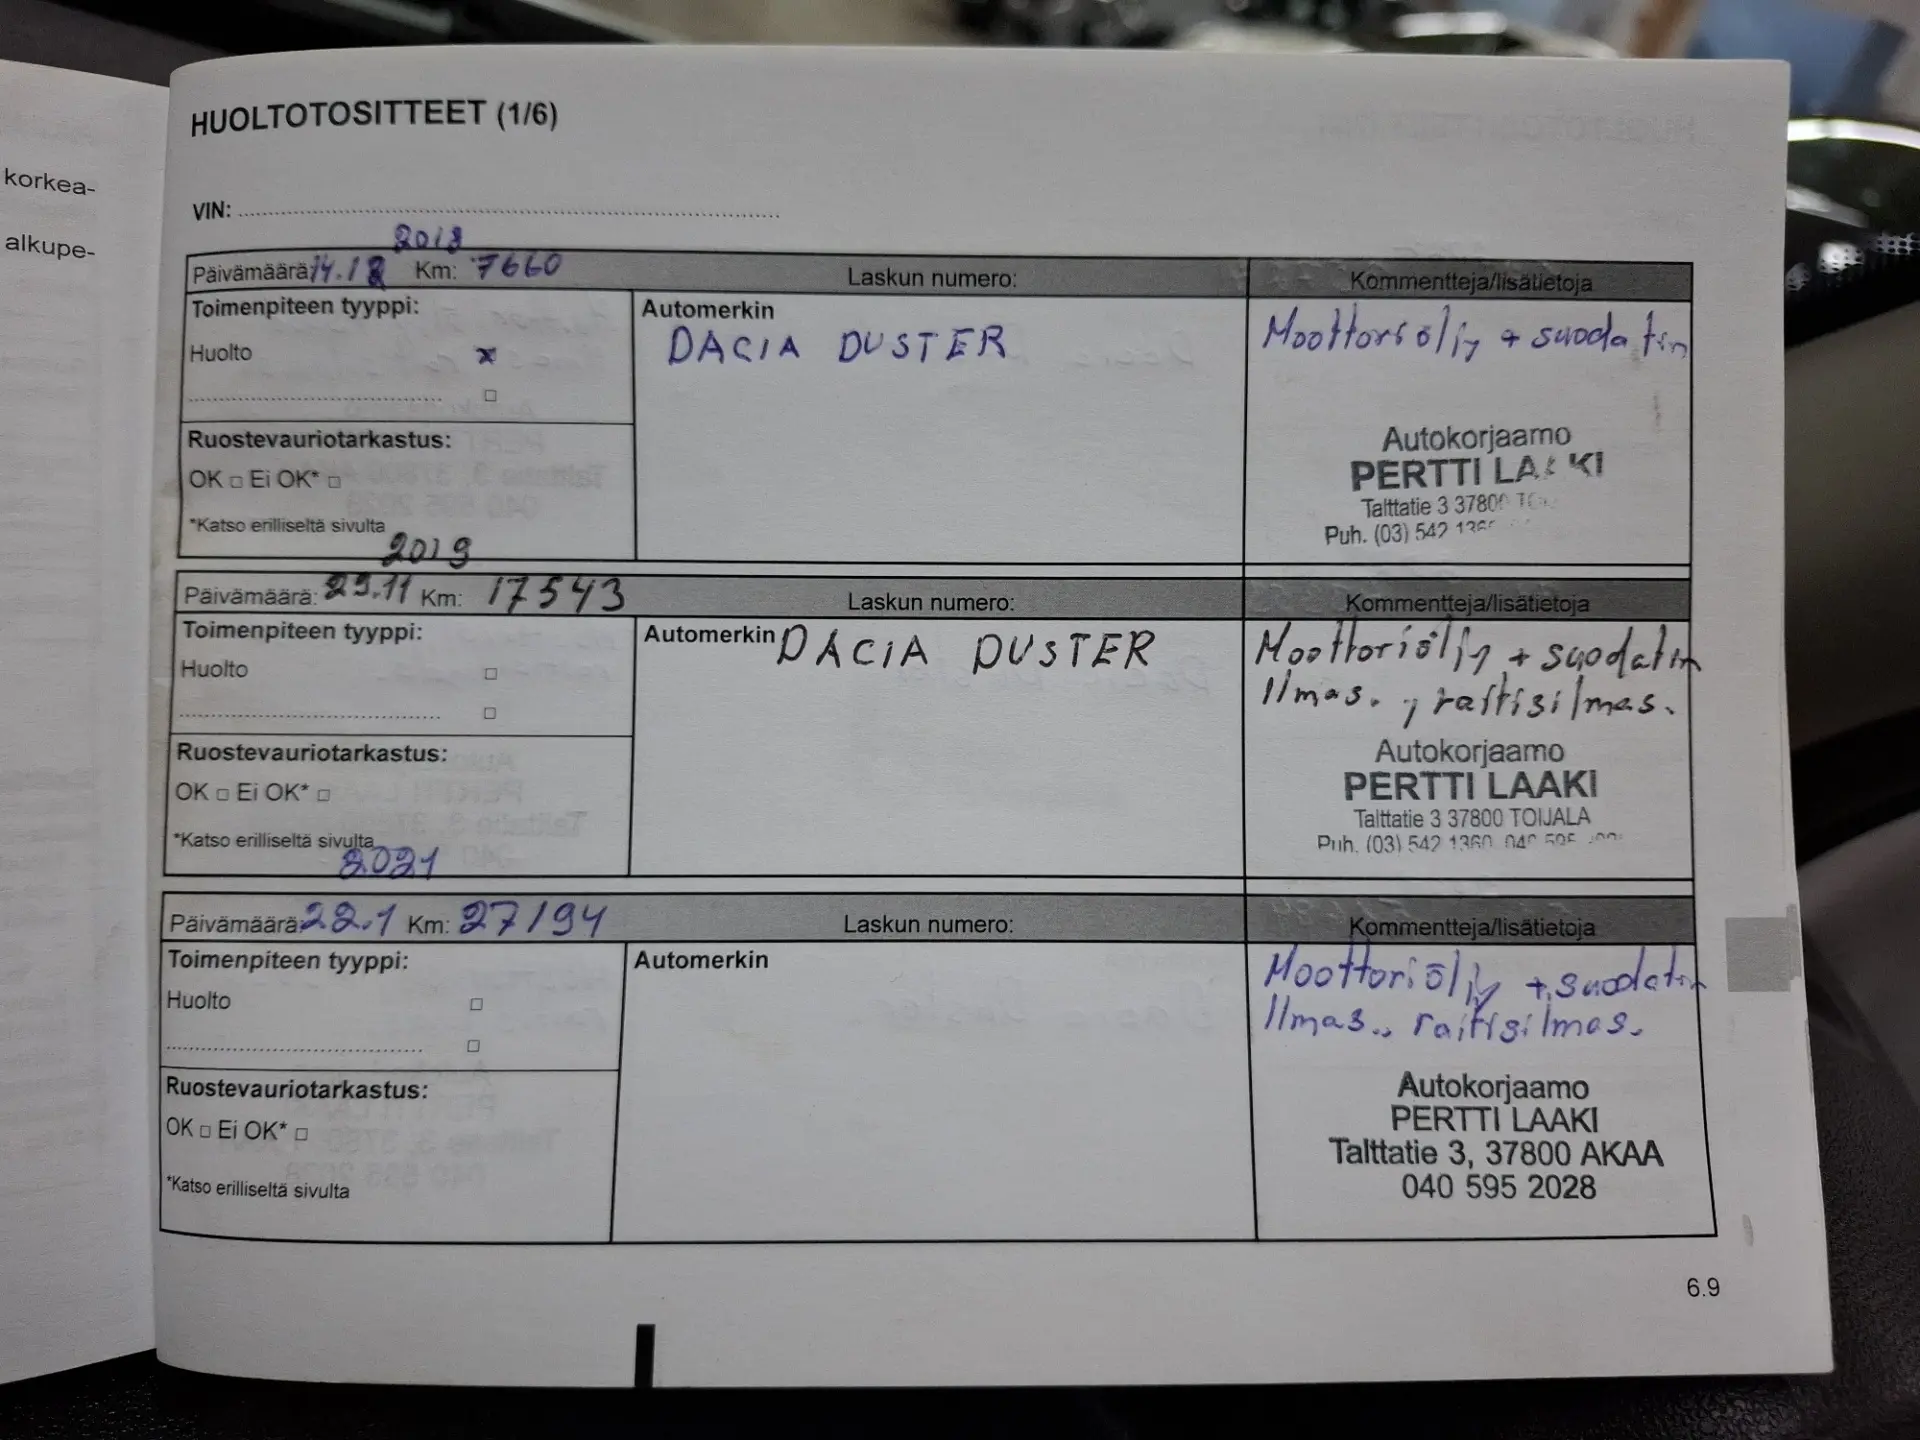 korkea-
alkupe-
HUOLTOTOSITTEET (1/6)
VIN:
2018
Päivämäärä: 14.12 Km: 7660 Laskun numero: Kommentteja/lisätietoja
Toimenpiteen tyyppi:
Huolto x
Automerkin
DACIA DUSTER
Moottoriöljy + suodatin
Ruostevauriotarkastus:
OK □ Ei OK* □
*Katso erilliseltä sivulta
Autokorjaamo
PERTTI LAAKI
Talttatie 3 37800
Puh. (03) 542
2019
Päivämäärä: 29.11 Km: 17543 Laskun numero: Kommentteja/lisätietoja
Toimenpiteen tyyppi:
Huolto □
□
Automerkin DACIA DUSTER
Moottoriöljy + suodatin
Ilmas. , raitisilmas.
Ruostevauriotarkastus:
OK □ Ei OK* □
*Katso erilliseltä sivulta
Autokorjaamo
PERTTI LAAKI
Talttatie 3 37800 TOIJALA
Puh. (03) 542 1360
2021
Päivämäärä: 22.1 Km: 27194 Laskun numero: Kommentteja/lisätietoja
Toimenpiteen tyyppi:
Huolto □
□
Automerkin
Moottoriöljy + suodatin
Ilmas., raitisilmas.
Ruostevauriotarkastus:
OK □ Ei OK* □
*Katso erilliseltä sivulta
Autokorjaamo
PERTTI LAAKI
Talttatie 3, 37800 AKAA
040 595 2028
6.9